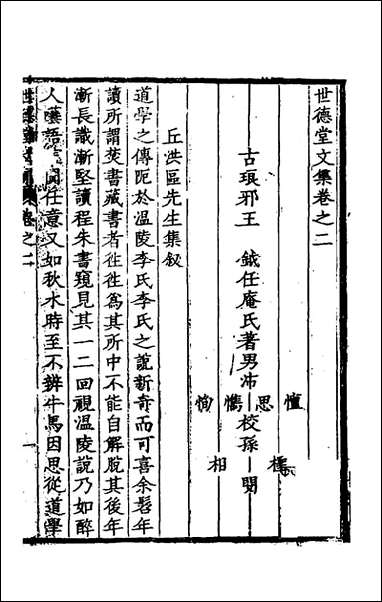 世德堂文集卷之二
古琅邪王　鉞任庵氏著男沛｜校孫｜閱
憻
思
懏
恂
檽
相
丘洪區先生集敘
道學之傳阨於溫陵李氏李氏之說新奇而可喜余髫年
讀所謂焚書藏書者往往為其所中不能自解脫其後年
漸長識漸堅讀程朱書窺見其一二回視溫陵說乃如醉
人囈語　閒任意又如秋水時至不辨牛馬因思從道學
世德堂文集　卷之二　一